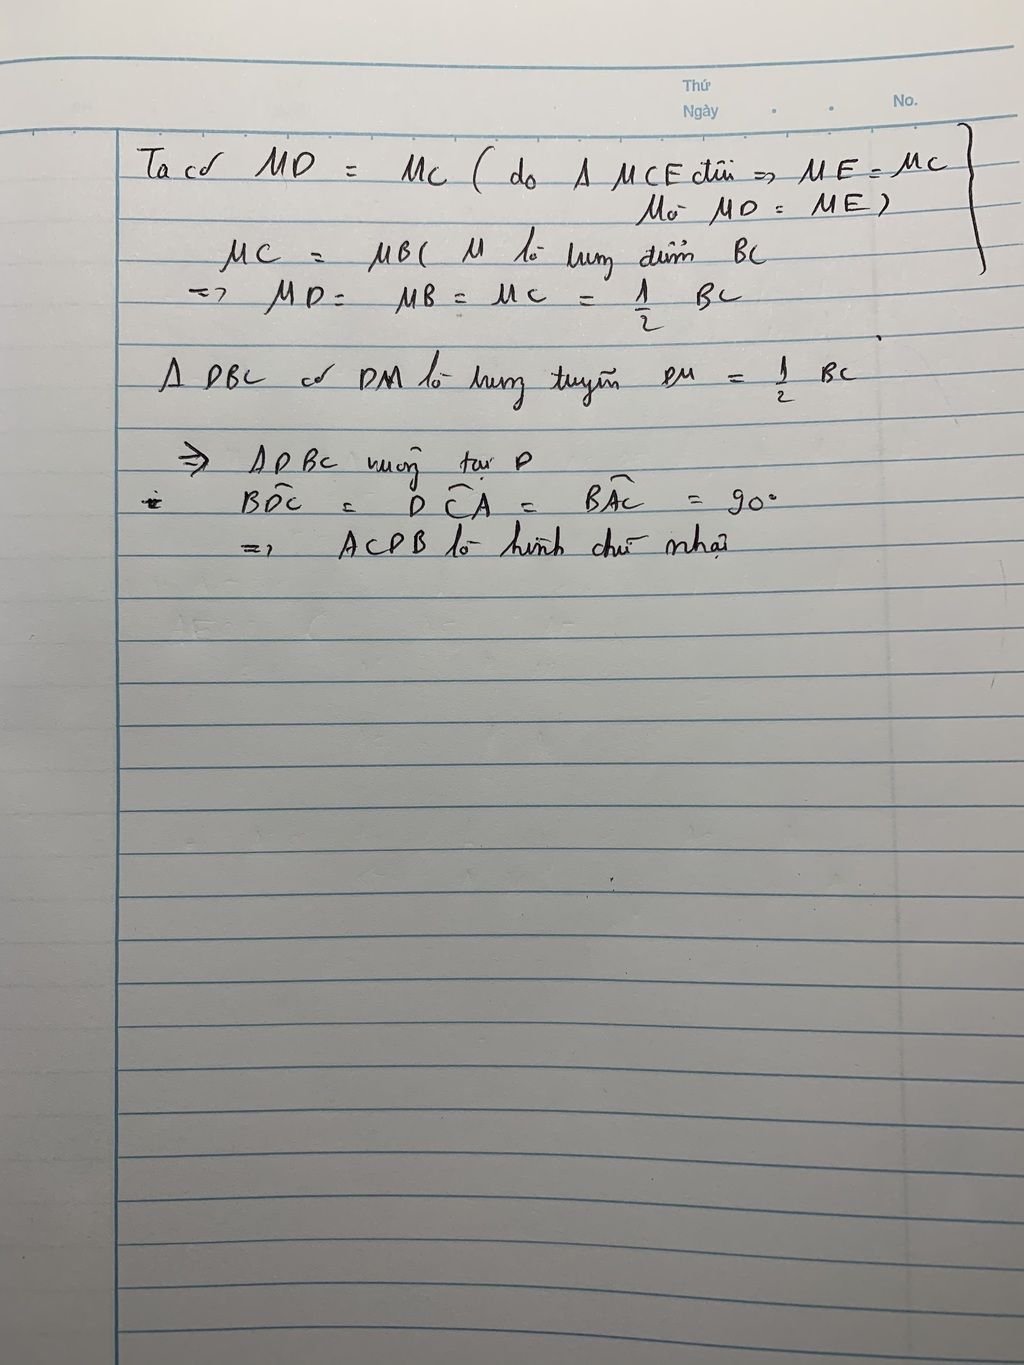 Thứ
Ngày . . No.
Ta có MD = MC ( do Δ MCE đều => ME = MC
Mà MD = ME )
MC = MB ( M là trung điểm BC
=> MD = MB = MC = 1/2 BC
Δ DBC có DM là trung tuyến DM = 1/2 BC
=> Δ DBC vuông tại D
BDC = DCA = BAC = 90°
=> ACDB là hình chữ nhật